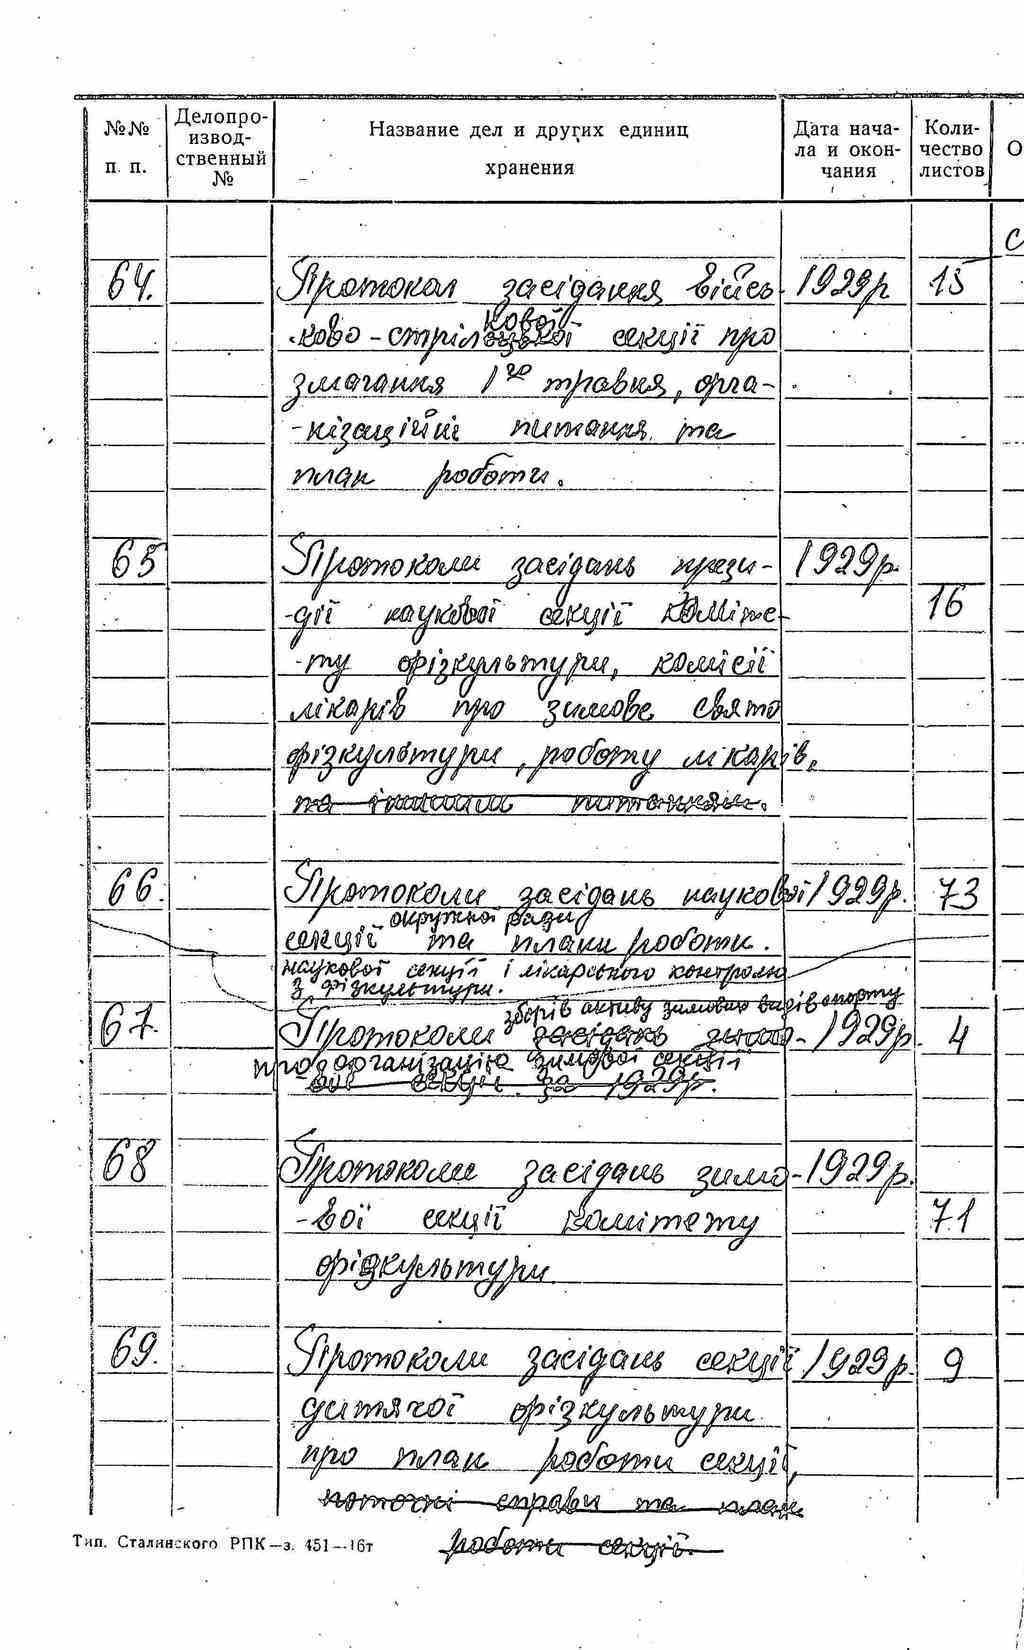 №№ п. п.
Делопро-
извод-
ственный
№
Название дел и других единиц
хранения
Дата нача-
ла и окон-
чания
Коли-
чество
листов
О
С
64. Протокол засідання війсь- 1929р 15
ково-стрілкової секції про
змагання 1го травня, орга-
-нізаційні питання та
план роботи.
65 Протоколи засідань прези- 1929р.
-дії наукової секції коміте- 16
-ту фізкультури, комісії
лікарів про зимове свято
фізкультури, роботу лікарів.
та іншим питанням.
66. Протоколи засідань наукової 1929р. 73
окружної ради
секції та плани роботи.
наукової секції і лікарського контролю
з фізкультури.
зборів активу зимових видів спорту
67. Протоколи засідань зимо- 1929р. 4
про організацію зимової секції
вої секції за 1929р.
68 Протоколи засідань зимо- 1929р.
-вої секції комітету 71
фізкультури
69. Протоколи засідань секції 1929р. 9
дитячої фізкультури
про план роботи секції,
поточні справи та план
роботи секції.
Тип. Сталинского РПК—з. 451—16т